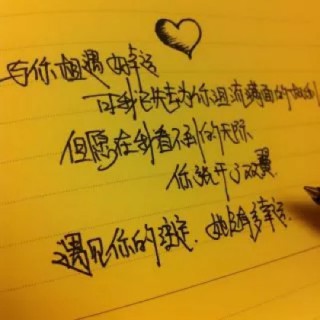 与你相遇 好幸运
可我已失去为你泪流满面的权利
但愿在我看不到的天际
你张开了双翼
遇见你的注定. 她会有多幸运.